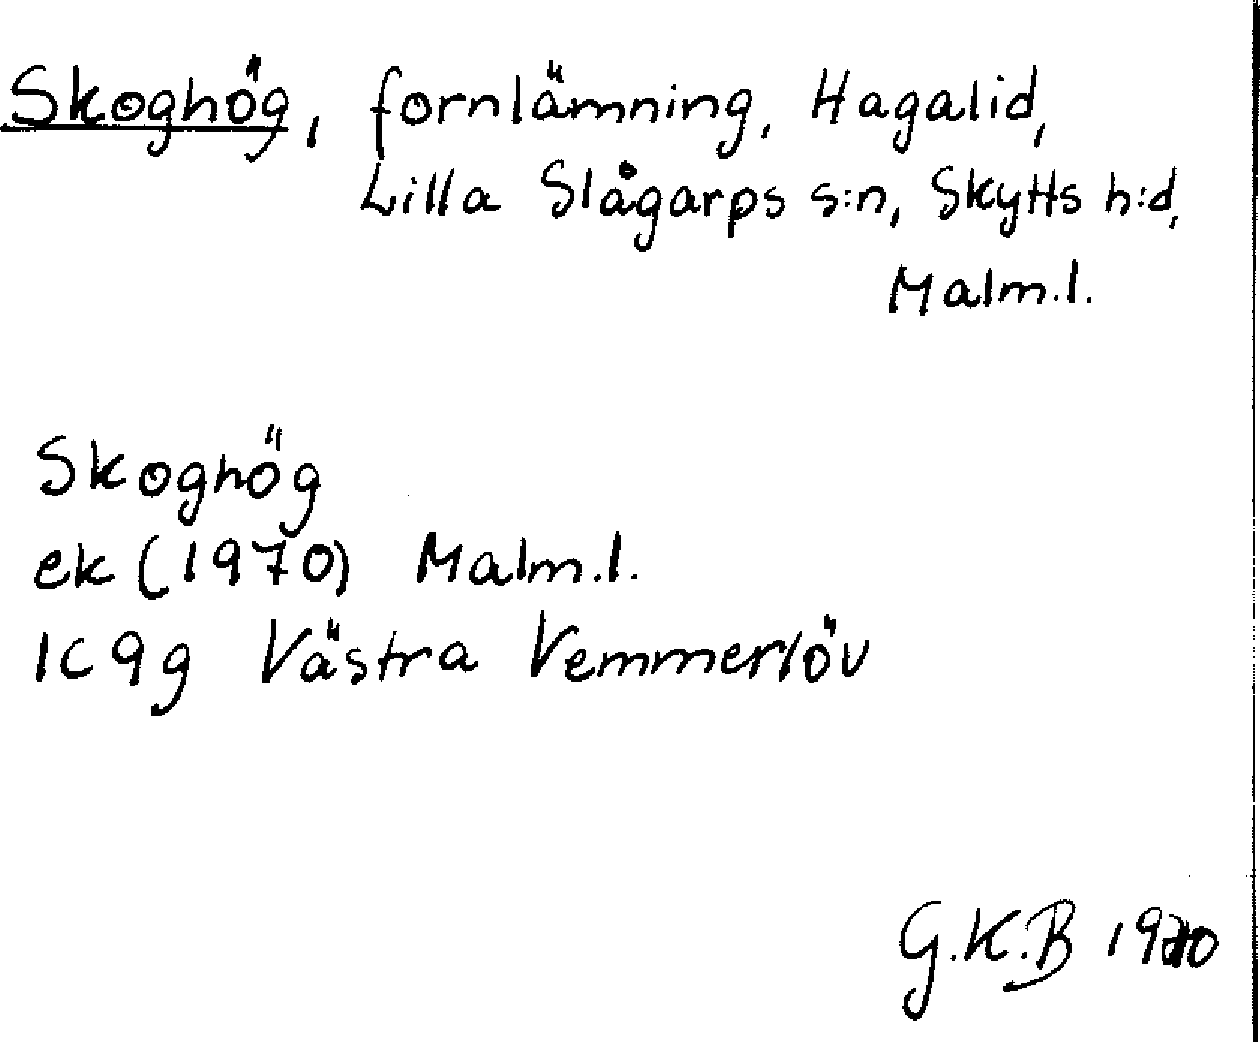 Skoghög, fornlämning, Hagalid,
Lilla Slågarps s:n, Skytts h:d,
Malm.l.
Skoghög
ek (1970) Malm.l.
1C 9g Västra Vemmerlöv
G.K.B 1970